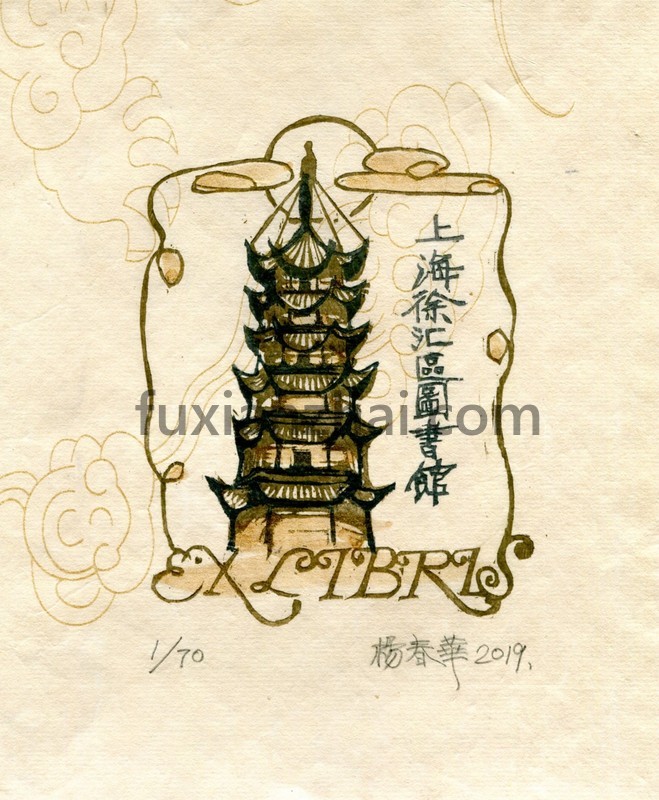 上海徐汇區圖書館
fuxianzhai.com
EX LIBRIS
1/70 楊春華 2019.